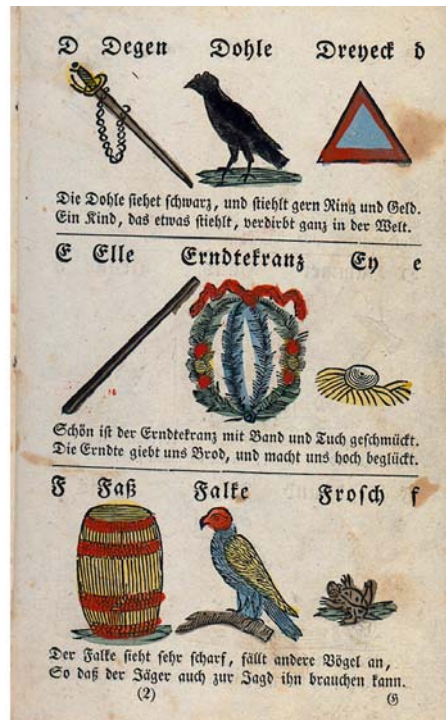 D Degen Dohle Dreyeck d
Die Dohle siehet schwarz, und stiehlt gern Ring und Geld.
Ein Kind, das etwas stiehlt, verdirbt ganz in der Welt.
E Elle Erndtekranz Ey e
Schön ist der Erndtekranz mit Band und Tuch geschmückt.
Die Erndte giebt uns Brod, und macht uns hoch beglückt.
F Faß Falke Frosch f
Der Falke sieht sehr scharf, fällt andere Vögel an,
So daß der Jäger auch zur Jagd ihn brauchen kann.
(2) G